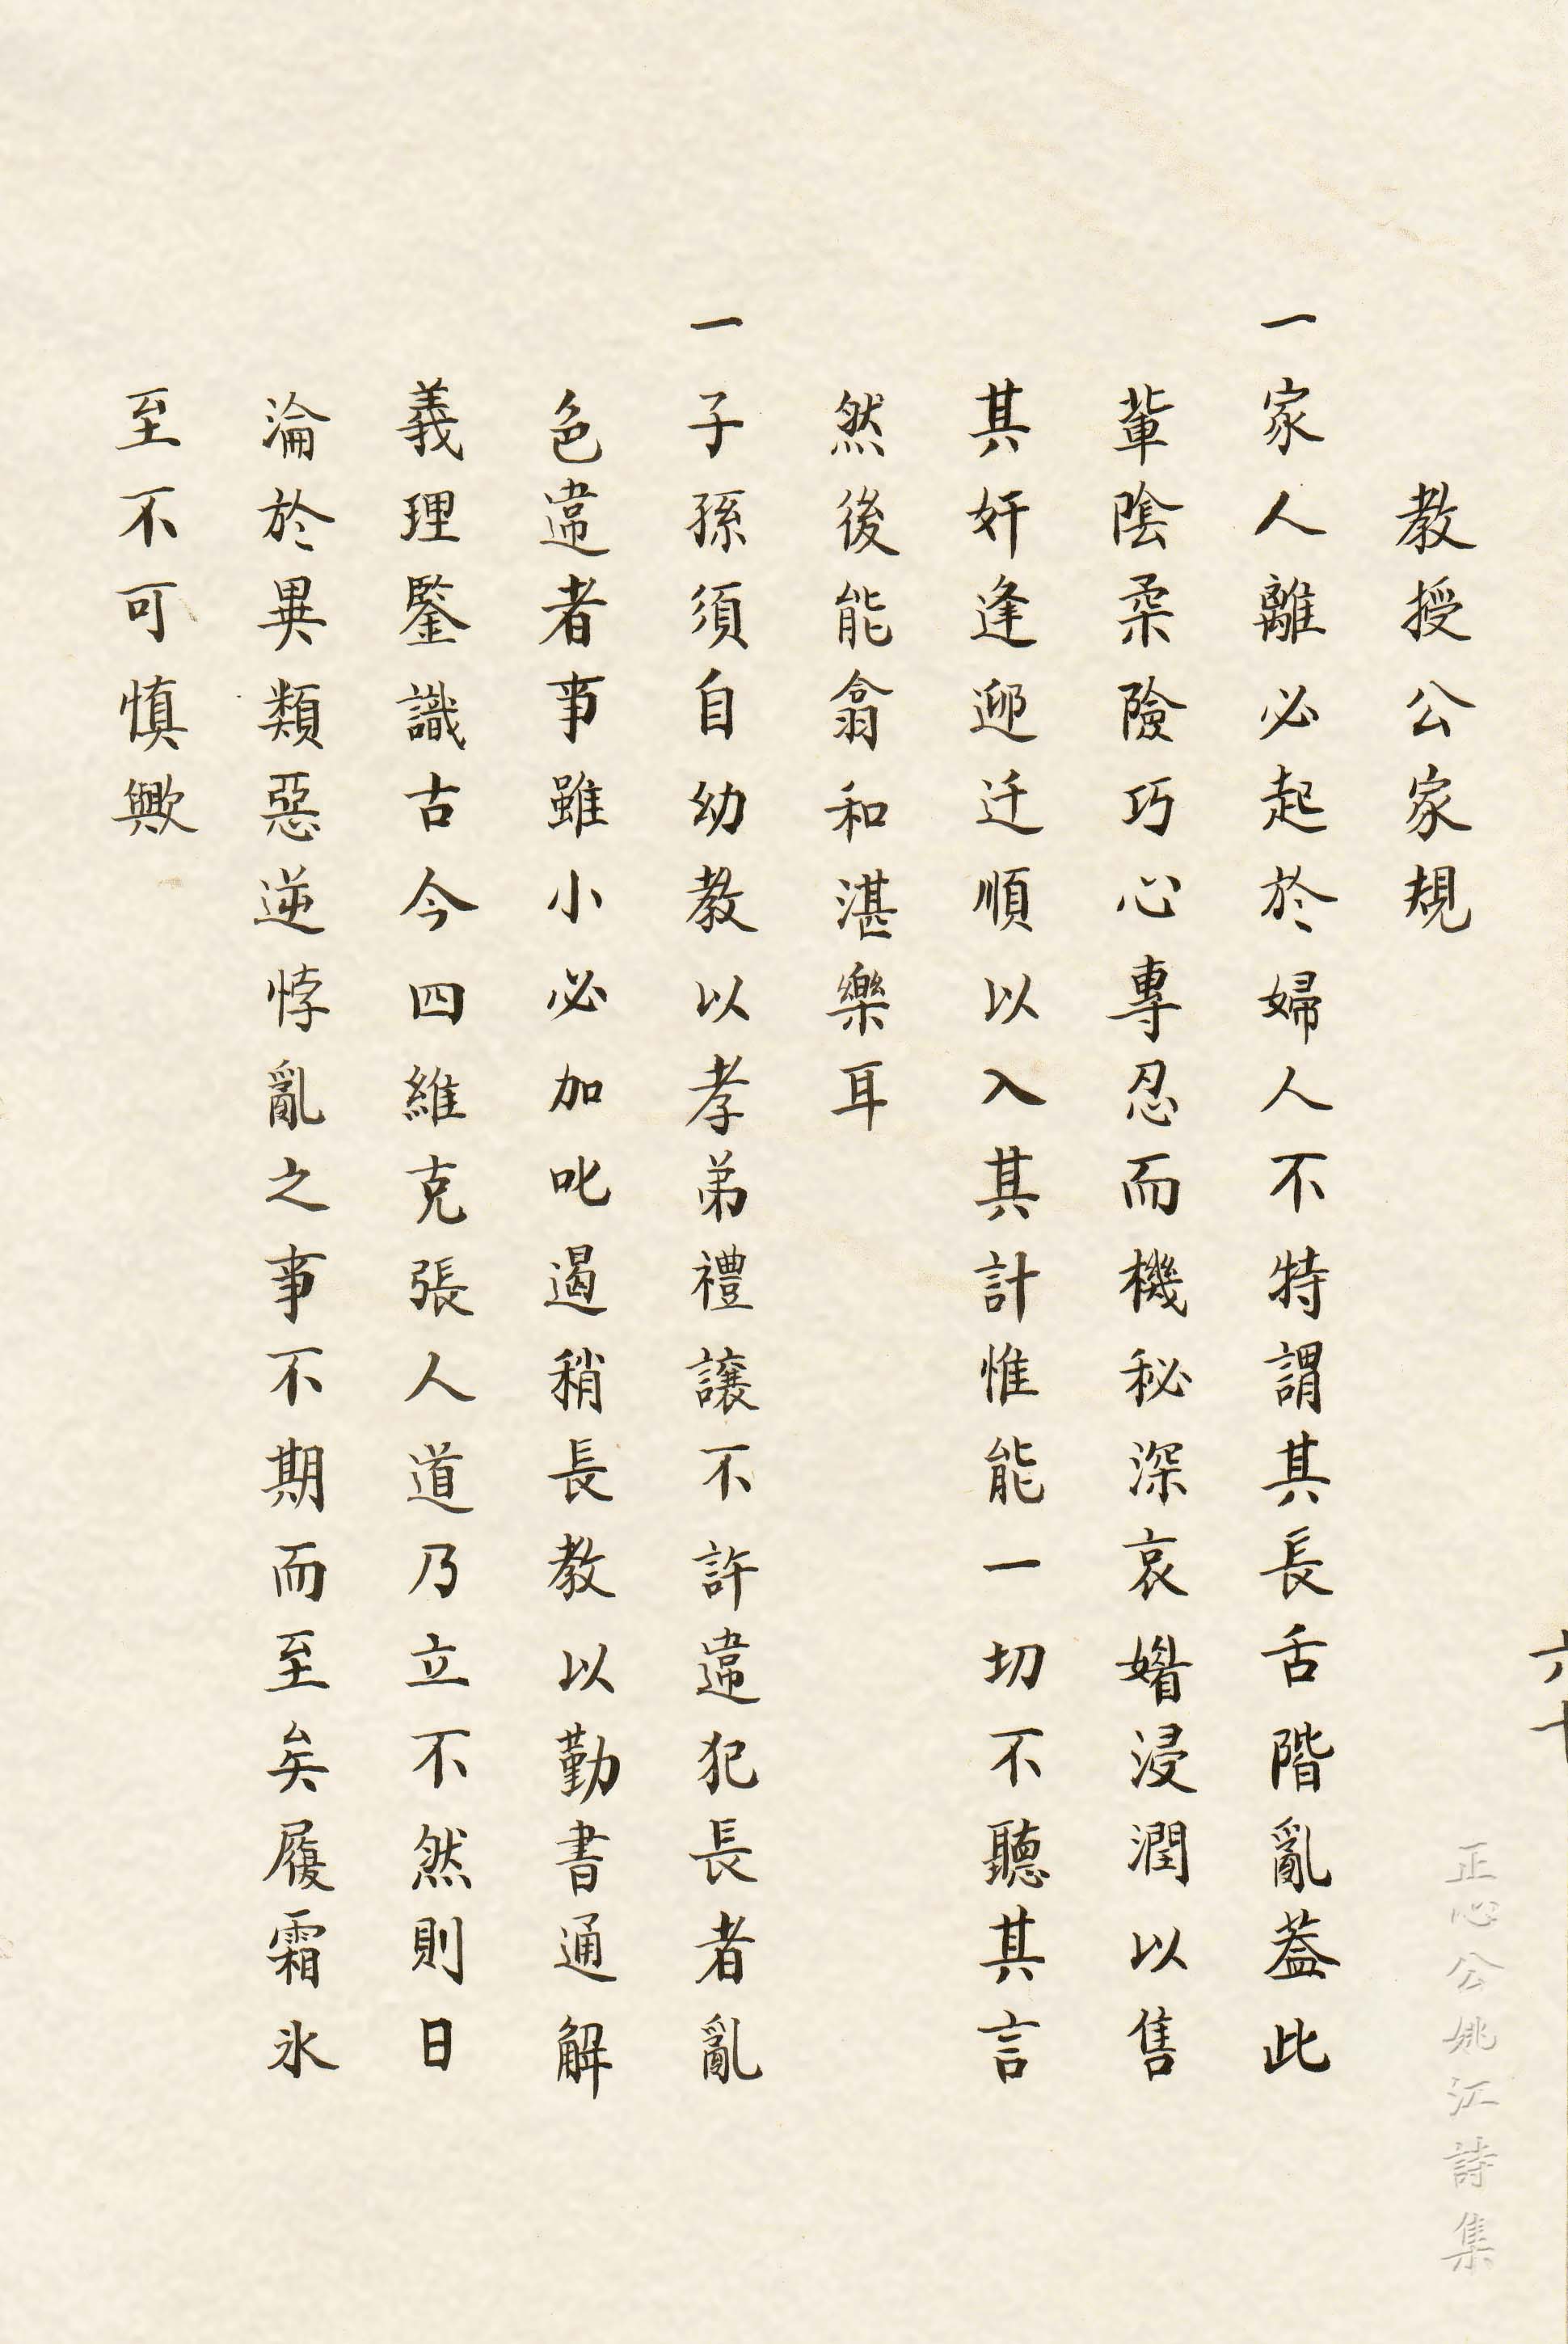 教授公家規
一家人離必起於婦人不特謂其長舌階亂葢此
輩陰柔險巧心專忍而機秘深哀媢浸潤以售
其奸逢迎迁順以入其計惟能一切不聽其言
然後能翕和湛樂耳
一子孫須自幼教以孝弟禮讓不許違犯長者亂
色違者事雖小必加叱遏稍長教以勤書通解
義理鑒識古今四維克張人道乃立不然則日
淪於異類惡逆悖亂之事不期而至矣履霜氷
至不可慎歟
六十
正心公姚江詩集